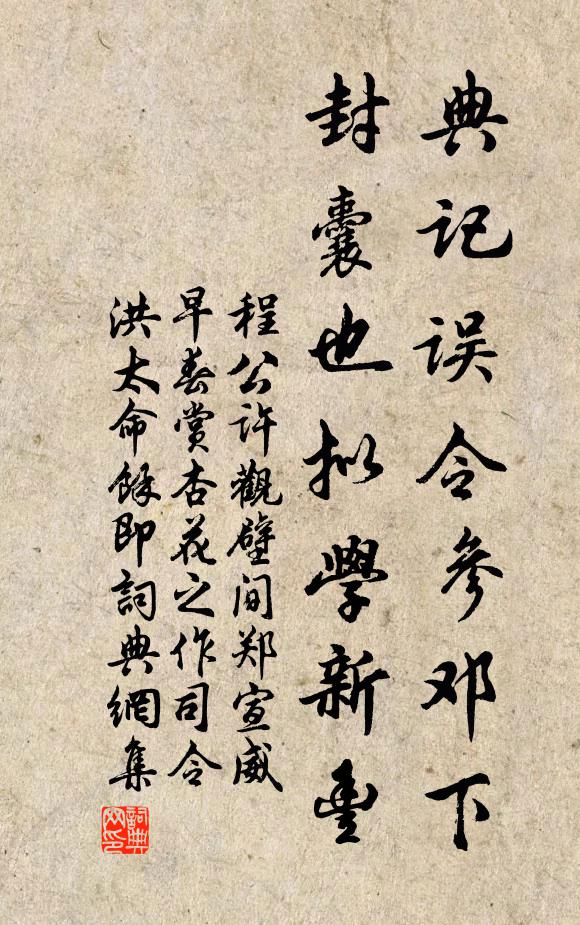 典记误令参邓下
封囊也拟學新豊
程公许觀壁间郑宣威
早春賞杏花之作司令
洪太命餘即詞典網集
詞典网印